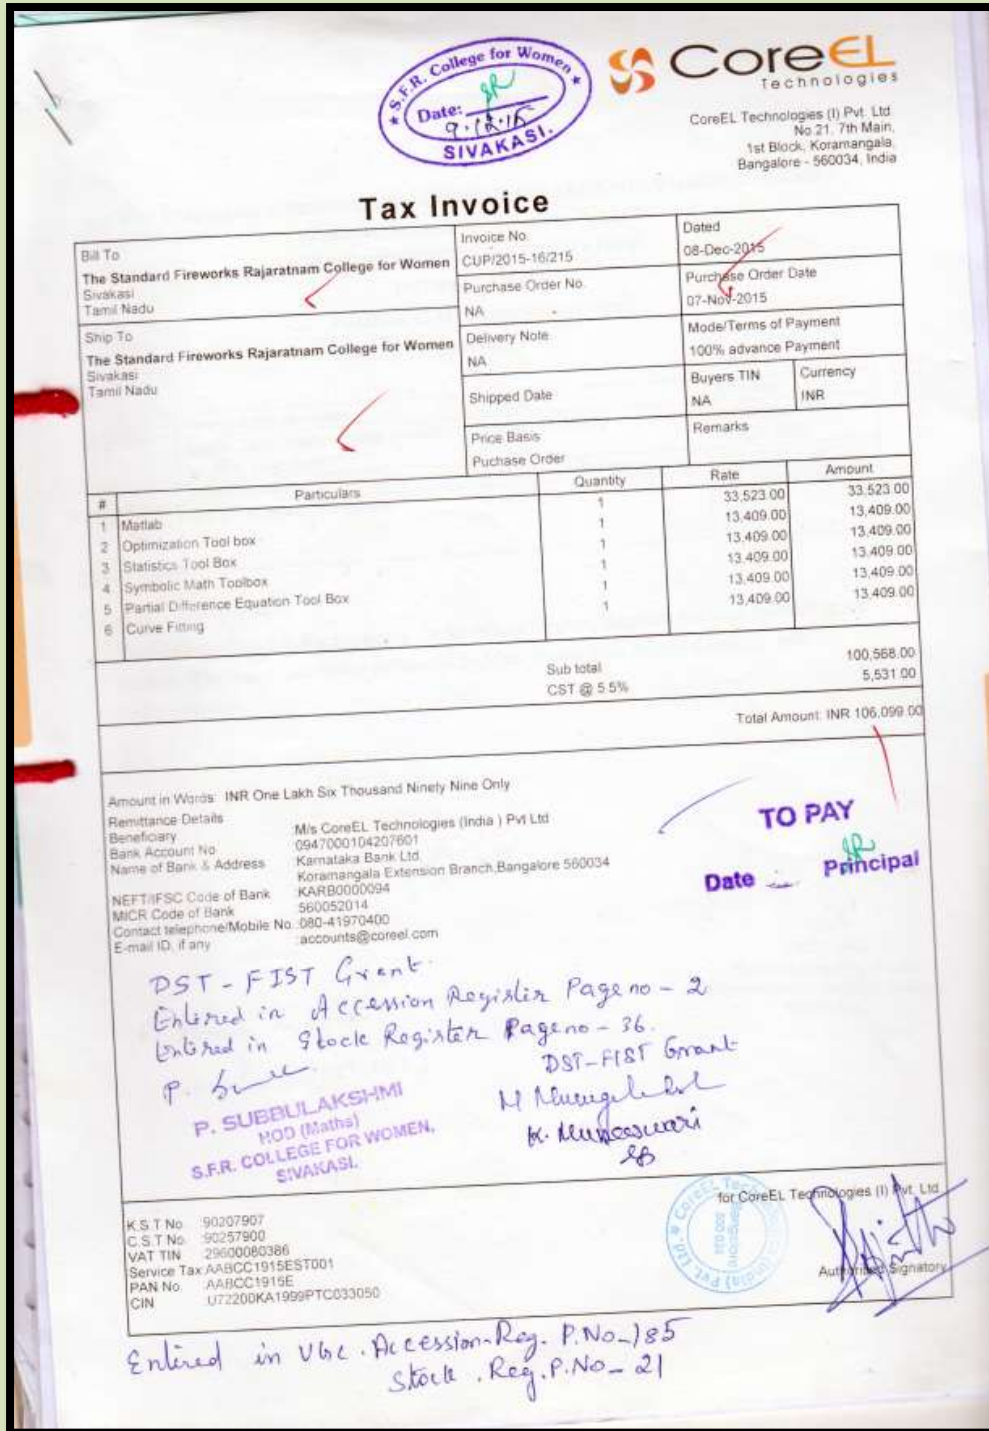 S.F.R. College for Women
Date:
9.12.15
SIVAKASI.
CoreEL
Technologies
CoreEL Technologies (I) Pvt. Ltd
No.21, 7th Main,
1st Block, Koramangala,
Bangalore - 560034, India
Tax Invoice
Bill To
The Standard Fireworks Rajaratnam College for Women
Sivakasi
Tamil Nadu
Invoice No.
CUP/2015-16/215
Dated
08-Dec-2015
Purchase Order No.
NA
Purchase Order Date
07-Nov-2015
Ship To
The Standard Fireworks Rajaratnam College for Women
Sivakasi
Tamil Nadu
Delivery Note
NA
Mode/Terms of Payment
100% advance Payment
Shipped Date
Buyers TIN
NA
Currency
INR
Price Basis
Puchase Order
Remarks
# Particulars Quantity Rate Amount
1 Matlab 1 33,523.00 33,523.00
2 Optimization Tool box 1 13,409.00 13,409.00
3 Statistics Tool Box 1 13,409.00 13,409.00
4 Symbolic Math Toolbox 1 13,409.00 13,409.00
5 Partial Difference Equation Tool Box 1 13,409.00 13,409.00
6 Curve Fitting 1 13,409.00 13,409.00
Sub total 100,568.00
CST @ 5.5% 5,531.00
Total Amount: INR 106,099.00
Amount in Words: INR One Lakh Six Thousand Ninety Nine Only
Remittance Details
Beneficiary M/s CoreEL Technologies (India ) Pvt Ltd
Bank Account No :0947000104207601
Name of Bank & Address :Karnataka Bank Ltd.
Koramangala Extension Branch,Bangalore 560034
NEFT/IFSC Code of Bank :KARB0000094
MICR Code of Bank :560052014
Contact telephone/Mobile No.:080-41970400
E-mail ID, if any :accounts@coreel.com
TO PAY
Date Principal
DST - FIST Grant.
Entered in Accession Register Page no - 2
Entered in Stock Register Page no - 36.
DST-FIST Grant
P. SUBBULAKSHMI
HOD (Maths)
S.F.R. COLLEGE FOR WOMEN,
SIVAKASI.
K. Muneeswari
K.S.T No :90207907
C.S.T No :90257900
VAT TIN :29600080386
Service Tax:AABCC1915EST001
PAN No. :AABCC1915E
CIN :U72200KA1999PTC033050
for CoreEL Technologies (I) Pvt. Ltd
Authorised Signatory
Entered in UGC. Accession-Reg. P.No-185
Stock. Reg. P.No- 21